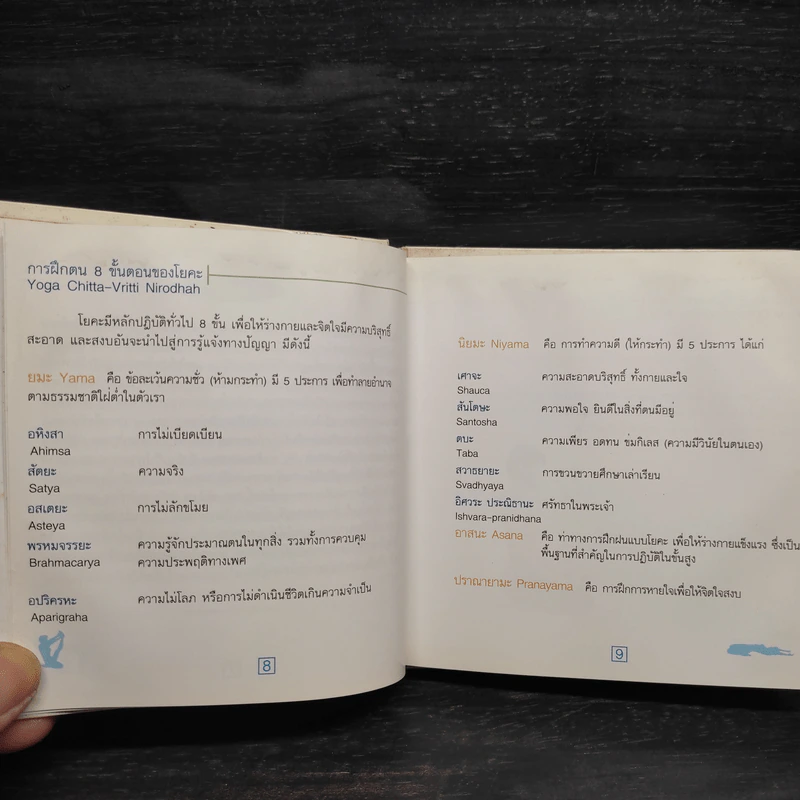 การฝึกตน 8 ขั้นตอนของโยคะ
Yoga Chitta-Vritti Nirodhah
โยคะมีหลักปฏิบัติทั่วไป 8 ขั้น เพื่อให้ร่างกายและจิตใจมีความบริสุทธิ์
สะอาด และสงบอันจะนำไปสู่การรู้แจ้งทางปัญญา มีดังนี้
ยมะ Yama คือ ข้อละเว้นความชั่ว (ห้ามกระทำ) มี 5 ประการ เพื่อทำลายอำนาจ
ตามธรรมชาติใฝ่ต่ำในตัวเรา
อหิงสา การไม่เบียดเบียน
Ahimsa
สัตยะ ความจริง
Satya
อสเตยะ การไม่ลักขโมย
Asteya
พรหมจรรยะ ความรู้จักประมาณตนในทุกสิ่ง รวมทั้งการควบคุม
Brahmacarya ความประพฤติทางเพศ
อปริครหะ ความไม่โลภ หรือการไม่ดำเนินชีวิตเกินความจำเป็น
Aparigraha
8
นิยมะ Niyama คือ การทำความดี (ให้กระทำ) มี 5 ประการ ได้แก่
เศาจะ ความสะอาดบริสุทธิ์ ทั้งกายและใจ
Shauca
สันโตษะ ความพอใจ ยินดีในสิ่งที่ตนมีอยู่
Santosha
ตบะ ความเพียร อดทน ข่มกิเลส (ความมีวินัยในตนเอง)
Taba
สวาธยายะ การขวนขวายศึกษาเล่าเรียน
Svadhyaya
อิศวระ ประณิธานะ ศรัทธาในพระเจ้า
Ishvara-pranidhana
อาสนะ Asana คือ ท่าทางการฝึกฝนแบบโยคะ เพื่อให้ร่างกายแข็งแรง ซึ่งเป็น
พื้นฐานที่สำคัญในการปฏิบัติในขั้นสูง
ปราณายามะ Pranayama คือ การฝึกการหายใจเพื่อให้จิตใจสงบ
9